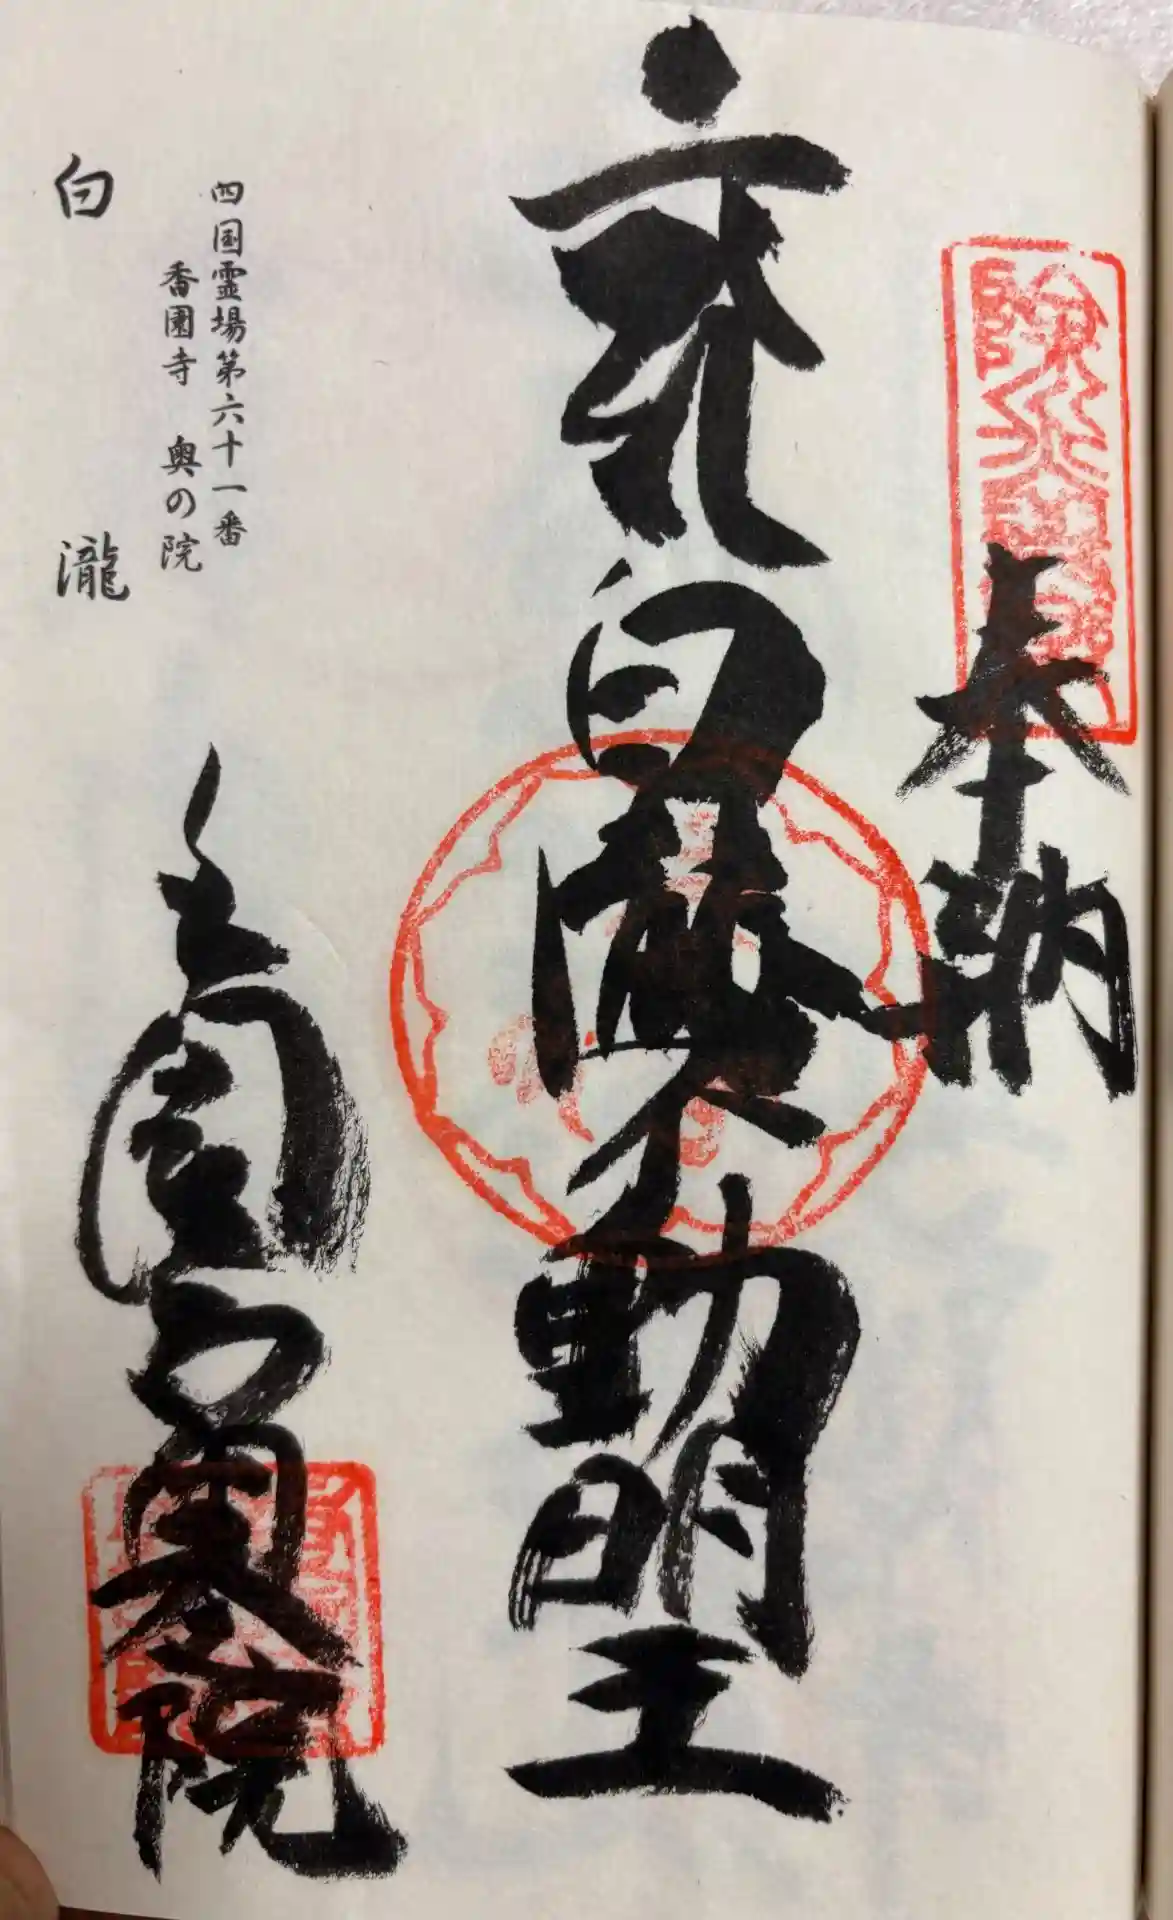 奉納
白瀧不動明王
四国霊場第六十一番
香園寺 奥の院
白瀧
香園寺奥院